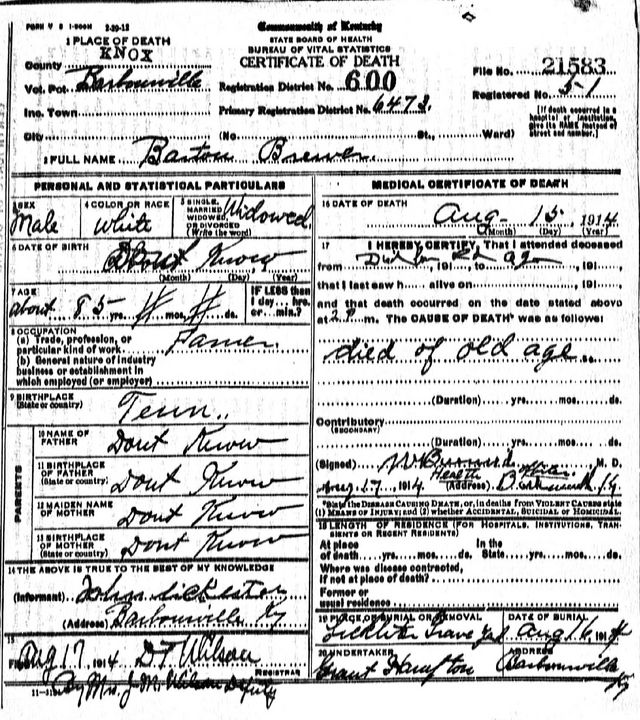 FORM V S 1-500M 2-29-12
Commonwealth of Kentucky
STATE BOARD OF HEALTH
BUREAU OF VITAL STATISTICS
CERTIFICATE OF DEATH
1 PLACE OF DEATH
KNOX
County
Vot. Pct. Barbourville
Inc. Town
City
Registration District No. 600
Primary Registration District No. 6473.
(No St., Ward)
File No. 21583
Registered No. 51
[If death occurred in a
hospital or institution,
give its NAME instead of
street and number.]
2 FULL NAME Barton Brewer.
PERSONAL AND STATISTICAL PARTICULARS
3 SEX
Male
4 COLOR OR RACE
White
5 SINGLE,
MARRIED,
WIDOWED,
OR DIVORCED
(Write the word)
Widowed
6 DATE OF BIRTH
Dont Know
(Month) (Day) (Year)
7 AGE
about 85 yrs. mos. ds.
IF LESS than
1 day... hrs.
or min.?
8 OCCUPATION
(a) Trade, profession, or
particular kind of work Famer
(b) General nature of industry
business or establishment in
which employed (or employer)
9 BIRTHPLACE
(State or country)
Tenn.
PARENTS
10 NAME OF
FATHER
Dont Know
11 BIRTHPLACE
OF FATHER
(State or country)
Dont Know
12 MAIDEN NAME
OF MOTHER
Dont Know
13 BIRTHPLACE
OF MOTHER
(State or country)
Dont Know
14 THE ABOVE IS TRUE TO THE BEST OF MY KNOWLEDGE
(Informant) John
(Address) Barbourville Ky
15
Filed Aug 17, 1914 D.T. Wilson
REGISTRAR
By Mrs. J. M. Wilson Deputy
MEDICAL CERTIFICATE OF DEATH
16 DATE OF DEATH
Aug- 15, 1914
(Month) (Day) (Year)
17 I HEREBY CERTIFY, That I attended deceased
from , 191 to , 191
that I last saw h alive on , 191
and that death occurred on the date stated above
at 2 P m. The CAUSE OF DEATH* was as follows:
died of old age
(Duration) yrs. mos. ds.
Contributory
(SECONDARY)
(Duration) yrs. mos. ds.
(Signed) , M. D.
Health
Aug 17, 1914 (Address) Ky
*State the DISEASE CAUSING DEATH, or, in deaths from VIOLENT CAUSES state
(1) MEANS OF INJURY; and (2) whether ACCIDENTAL, SUICIDAL or HOMICIDAL
18 LENGTH OF RESIDENCE (FOR HOSPITALS, INSTITUTIONS, TRAN-
SIENTS OR RECENT RESIDENTS)
At place In the
of death yrs. mos. ds. State yrs. mos. ds.
Where was disease contracted,
if not at place of death?
Former or
usual residence
19 PLACE OF BURIAL OR REMOVAL
Grave Yd
DATE OF BURIAL
Aug 16, 1914
20 UNDERTAKER
Grant Hampton
ADDRESS
Barbourville
Ky